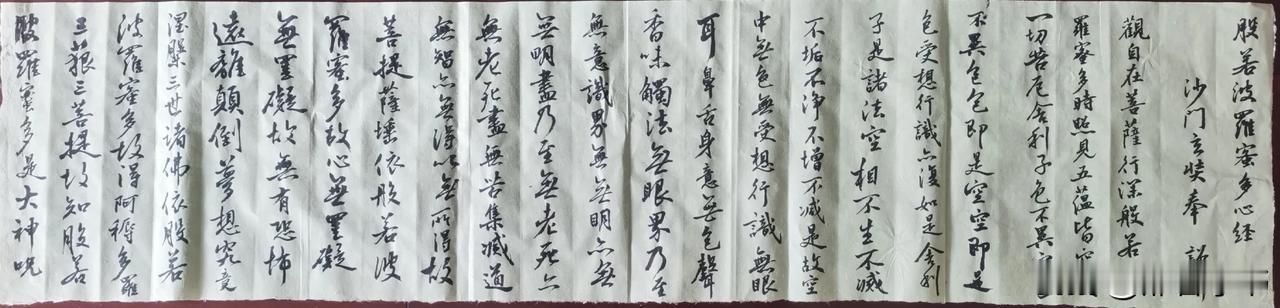 般若波羅蜜多心經
沙门玄奘奉詔
觀自在菩薩行深般若
羅蜜多時照見五蕴皆空
一切苦厄舍利子色不異空
不異色色即是空空即是
色受想行識亦復如是舍利
子是諸法空相不生不滅
不垢不净不增不减是故空
中無色無受想行識無眼
耳鼻舌身意無色聲
香味觸法無眼界乃至
無意識界無無明亦無
無明盡乃至無老死亦
無老死盡無苦集滅道
無智亦無得以無所得故
菩提薩埵依般若波
羅蜜多故心無罣礙
無罣礙故無有恐怖
遠離顛倒夢想究竟
涅槃三世诸佛依般若
波羅蜜多故得阿耨多羅
三藐三菩提故知般若
般羅蜜多是大神呪